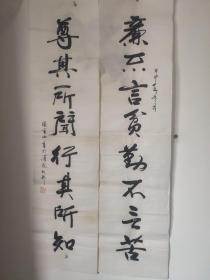 廉不言贫勤不言苦
尊其所闻行其所知